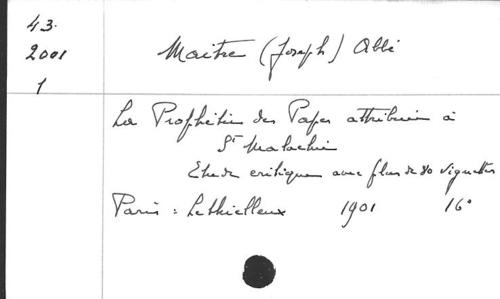 43.
2001
1
Maitre (Joseph) Abbé
La Prophétie des Papes attribuée à
St Malachie
Etude critique avec plus de 80 vignettes
Paris : Lethielleux 1901 16°